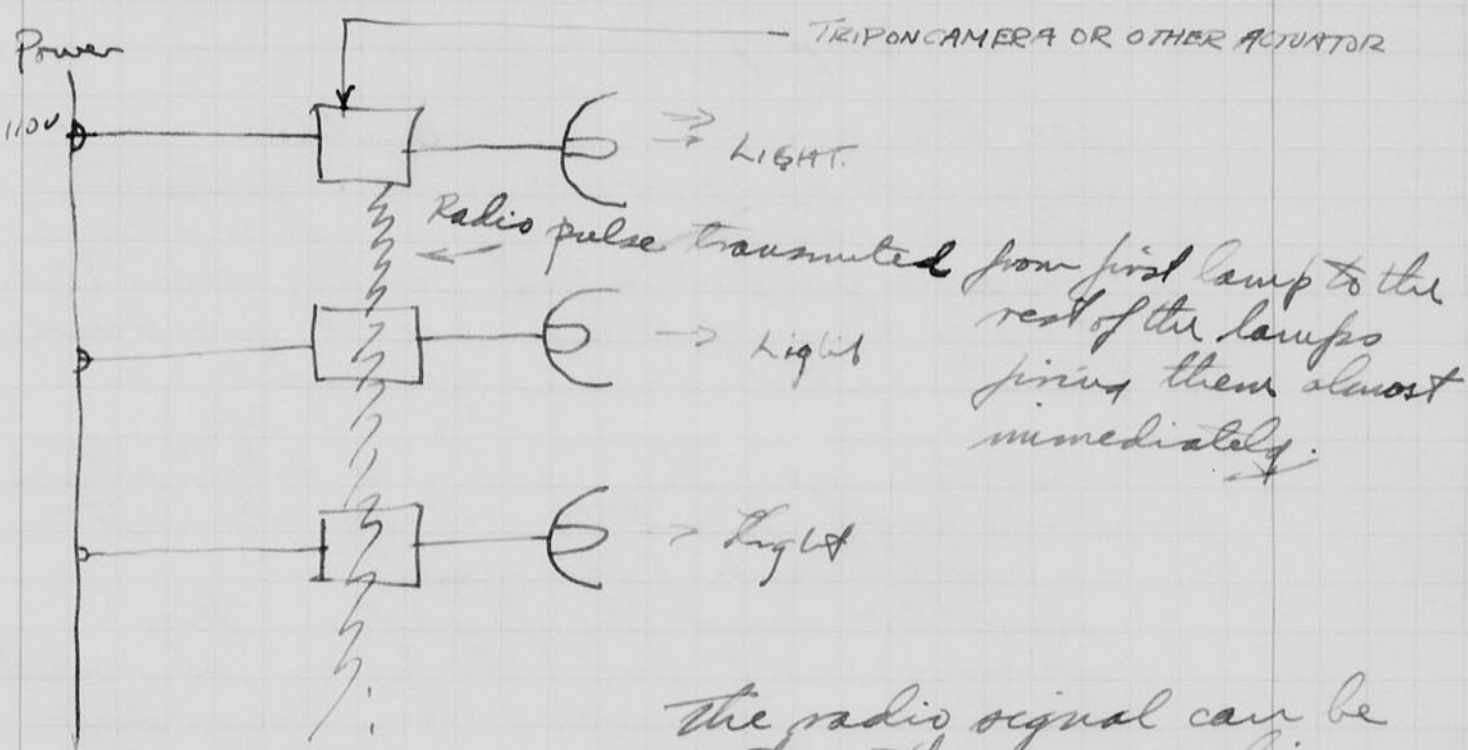 Power
TRIP ON CAMERA OR OTHER ACTUATOR
110V
LIGHT.
Radio pulse transmitted from first lamp to the
rest of the lamps
firing them almost
immediately.
Light
Light
the radio signal can be